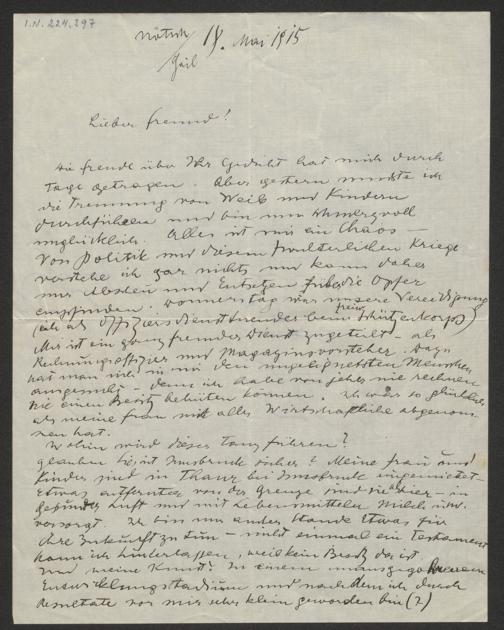 I.N. 224.297
Nötsch 18. Mai 1915
Gail
Lieber Freund!
Die Freude über Ihr Gedicht hat mich durch
Tage getragen. Aber gestern musste ich
die Trennung von Weib und Kindern
durchführen und bin nun
unglücklich. Alles ist mir ein Chaos –
Von Politik und diesem fürchterlichen Kriege
verstehe ich gar nichts und kann daher
nur Abscheu und Entsetzen für die Opfer
empfinden. Donnerstag war unsere Vereidigung
(ich als Offiziersdiensttuender beim freiw. Schütz. Korps)
Mir ist ein ganz fremder Dienst zugeteilt – als
Rechnungsoffizier und Magazinsvorsteher. Dazu
hat man sich in mir den ungeeignetsten Menschen
ausgesucht – denn ich habe von jeher nie rechnen
nie einen Besitz behüten können. Ich war so glücklich,
als meine Frau mir alles Wirtschaftliche abgenom-
men hat.
Wohin wird dieser Tanz führen?
Glauben Sie, ist Innsbruck sicher? Meine Frau und
Kinder sind in Thaur bei Innsbruck eingemietet –
Etwas entfernter von der Grenze sind sie hier – in
gesünder Luft und mit Lebensmitteln, Milch u.s.w.
versorgt. Ich bin nun außer Stande Etwas für
ihre Zukunft zu tun – nicht einmal ein Testament
kann ich hinterlassen, weil kein Besitz da ist.
Und meine Kunst? In einem
Entwicklungsstadium und nachdem ich durch
Resultate vor mir sehr klein geworden bin (?)